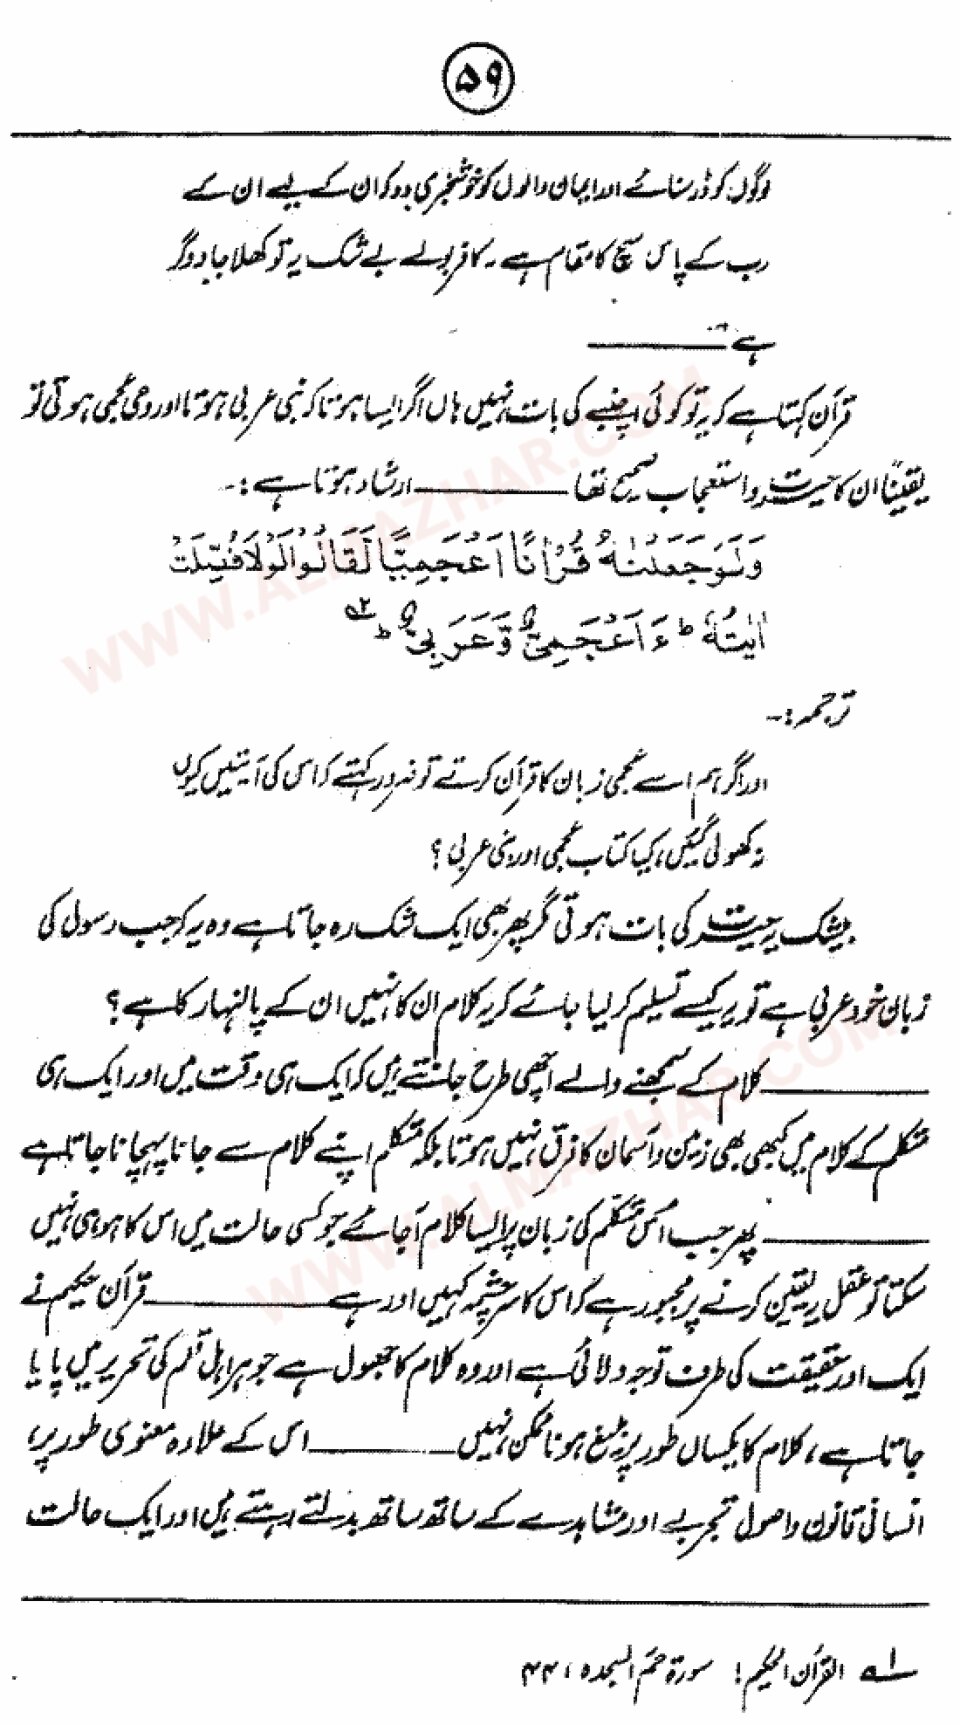 ۵۹
لوگوں کو ڈر سنائے اور ایمان والوں کو خوشخبری دو کہ ان کے لیے ان کے
رب کے پاس سچ کا مقام ہے۔ کافر بولے بے شک یہ تو کھلا جادوگر
ہے ــــــــ
قرآن کہتا ہے کہ یہ تو کوئی اچنبھے کی بات نہیں ہاں اگر ایسا ہوتا کہ نبی عربی ہوتا اور وحی عجمی ہوتی تو
یقیناً ان کا حیرت و استعجاب صحیح تھا ــــــــ ارشاد ہوتا ہے :۔
وَلَوْ جَعَلْنٰهُ قُرْاٰنًا اَعْجَمِيًّا لَّقَالُوْا لَوْلَا فُصِّلَتْ
اٰيٰتُهٗ ؕ ءَاَعْجَمِىٌّ وَّعَرَبِىٌّ ؕ ۲ہ
ترجمہ :۔
اور اگر ہم اسے عجمی زبان کا قرآن کرتے تو ضرور کہتے کہ اس کی آیتیں کیوں
نہ کھولی گئیں، کیا کتاب عجمی اور نبی عربی ؟
بیشک یہ حیرت کی بات ہوتی مگر پھر بھی ایک شک رہ جاتا ہے وہ یہ کہ جب رسول کی
زبان خود عربی ہے تو یہ کیسے تسلیم کر لیا جائے کہ یہ کلام ان کا نہیں ان کے پالنہار کا ہے ؟
ــــــــ کلام کے سمجھنے والے اچھی طرح جانتے ہیں کہ ایک ہی وقت میں اور ایک ہی
متکلم کے کلام میں کبھی بھی زمین و آسمان کا فرق نہیں ہوتا بلکہ متکلم اپنے کلام سے جانا پہچانا جاتا ہے
ــــــــ پھر جب اس متکلم کی زبان پر ایسا کلام آجائے جو کسی حالت میں اس کا ہو ہی نہیں
سکتا تو عقل یہ یقین کرنے پر مجبور ہے کہ اس کا سرچشمہ کہیں اور ہے ــــــــ قرآن حکیم نے
ایک اور حقیقت کی طرف توجہ دلائی ہے اور وہ کلام کا جھول ہے جو ہر اہل قلم کی تحریر میں پایا
جاتا ہے، کلام کا یکساں طور پر بلیغ ہونا ممکن نہیں ــــــــ اس کے علاوہ معنوی طور پر،
انسانی قانون و اصول تجربے اور مشاہدے کے ساتھ ساتھ بدلتے رہتے ہیں اور ایک حالت
۱ہ القرآن الحکیم : سورۃ حٰم السجدہ ، ۴۴
WWW.ALMAZHAR.COM
WWW.ALMAZHAR.COM